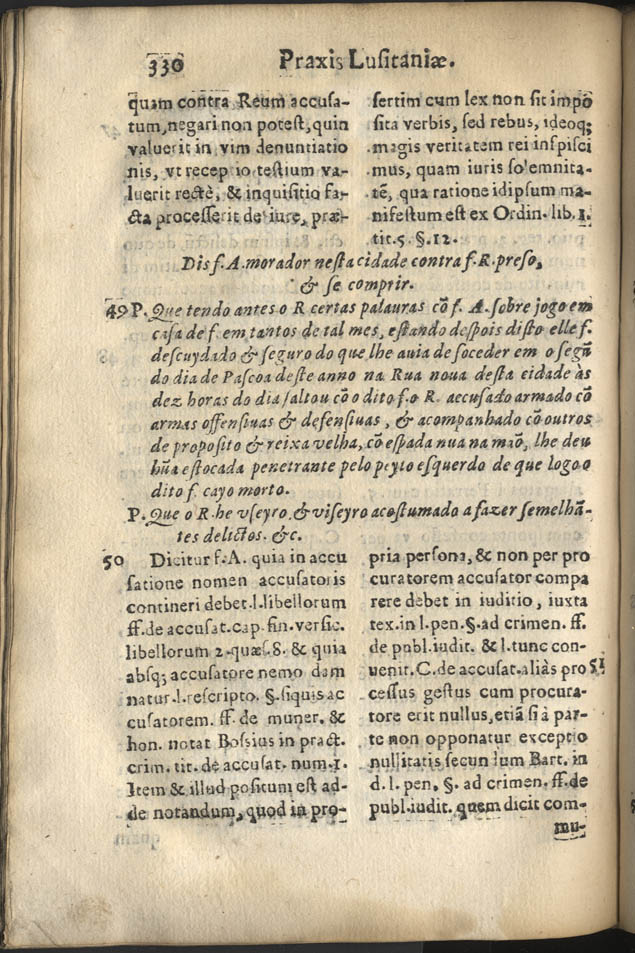 330 Praxis Lusitaniæ.
quam contra Reum accusa-
tum, negari non potest, quin
valuerit in vim denuntiatio
nis, vt receptio testium va-
luerit rectè, & inquisitio fa-
cta processerit de iure, præ-
sertim cum lex non sit impo
sita verbis, sed rebus, ideoq;
magis veritatem rei inspici
mus, quam iuris solemnita-
tē, qua ratione idipsum ma-
nifestum est ex Ordin. lib. 1.
tit. 5. §. 12.
Dis f. A. morador nesta cidade contra f. R. preso,
& se comprir.
49 P. Que tendo antes o R certas palauras cõ f. A. sobre jogo em
casa de f. em tantos de tal mes, estando despois disto elle f.
descuydado & seguro do que lhe auia de soceder em o segũ
do dia de Pascoa deste anno na Rua noua desta cidade às
dez horas do dia saltou cõ o dito f. o R. accusado armado cõ
armas offensiuas & defensiuas, & acompanhado cõ outros
de proposito & reixa velha, cõ espada nua na mão, lhe deu
hũa estocada penetrante pelo peyto esquerdo de que logo o
dito f. cayo morto.
P. Que o R. he vseyro & viseyro acostumado a fazer semelhã-
tes delictos. &c.
50 Dicitur f. A. quia in accu
satione nomen accusatoris
contineri debet. l. libellorum
ff. de accusat. cap. fin. versic.
libellorum 2. quæs. 8. & quia
absq; accusatore nemo dam
natur. l. rescripto. §. siquis ac
cusatorem. ff. de muner. &
hon. notat Bossius in pract.
crim. tit. de accusat. num. 1.
Item & illud positum est ad-
de notandum, quod in pro-
pria persona, & non per pro
curatorem accusator compa
rere debet in iuditio, iuxta
tex. in l. pen. §. ad crimen. ff.
de publ. iudit. & l. tunc con-
uenit. C. de accusat. aliàs pro 51
cessus gestus cum procura-
tore erit nullus, etiã si à par-
te non opponatur exceptio
nullitatis secundum Bart. in
d. l. pen. §. ad crimen. ff. de
publ. iudit. quem dicit com-
mu-